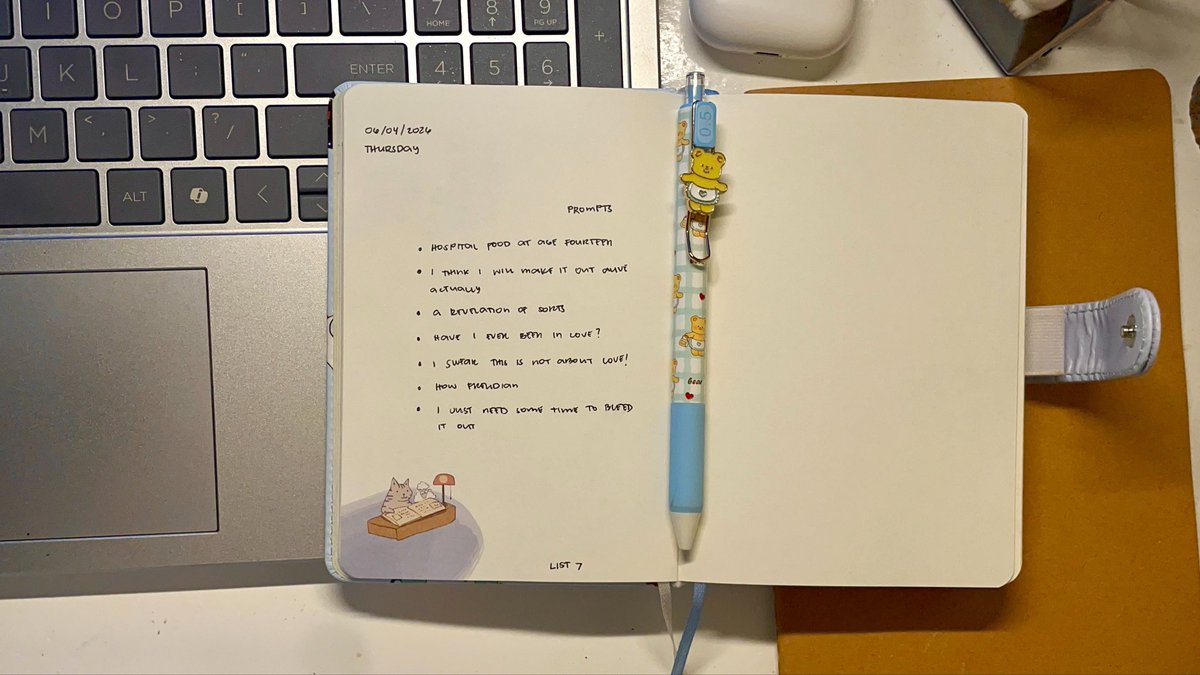 I O P [ ] \ 7 8 9
HOME PG UP
+
J K L ; " ' ENTER 4 5 6
M < , > . ? /
ALT <
06/04/2026
THURSDAY
PROMPTS
• HOSPITAL FOOD AT AGE FOURTEEN
• I THINK I WILL MAKE IT OUT ALIVE
ACTUALLY
• A REVELATION OF SORTS
• HAVE I EVER BEEN IN LOVE?
• I SWEAR THIS IS NOT ABOUT LOVE!
• HOW FREUDIAN
• I JUST NEED SOME TIME TO BLEED
IT OUT
LIST 7
0.5
Bear